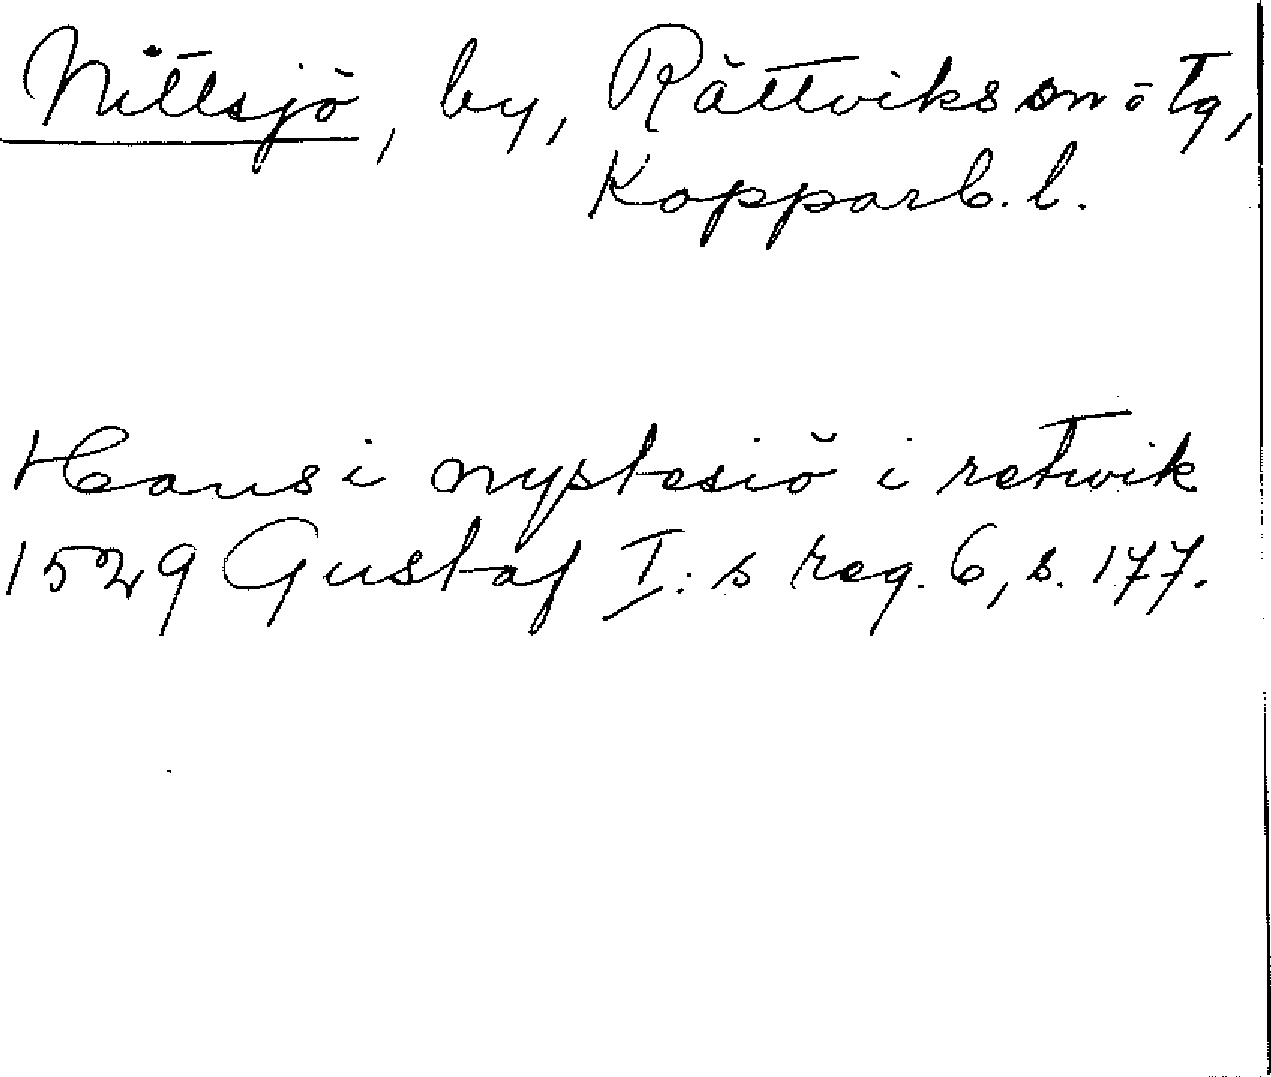 Nittsjö, by, Rättviks sn o tg,
Kopparb. l.
Hans i nystesiö i retwik
1529 Gustaf I: s reg. 6, s. 177.